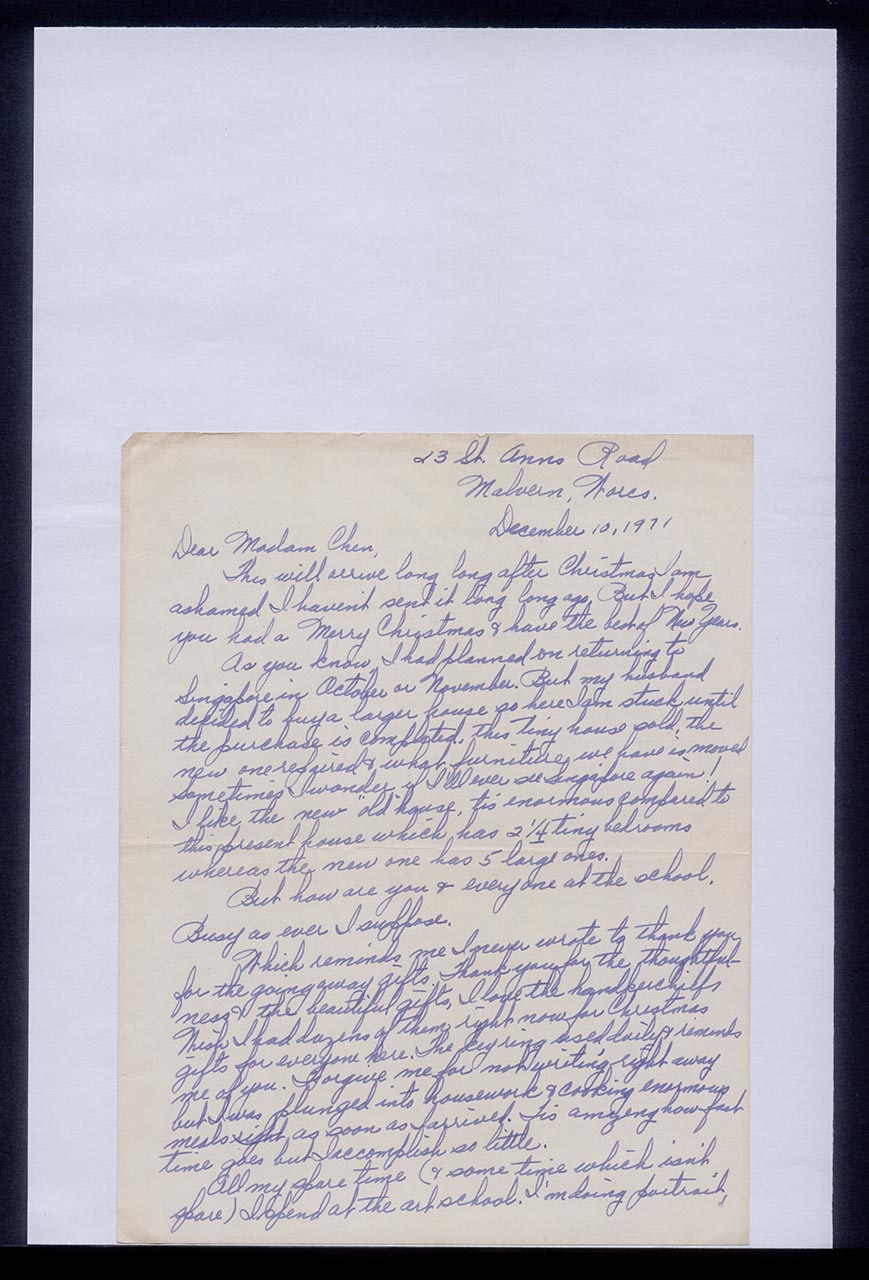 23 St. Anns Road
Malvern, Worcs.
December 10, 1971
Dear Madam Chen,
This will arrive long long after Christmas, I am
ashamed I haven't sent it long long ago. But I hope
you had a Merry Christmas & have the best of New Years.
As you know, I had planned on returning to
Singapore in October or November. But my husband
decided to buy a larger house so here I am stuck until
the purchase is completed, this tiny house sold, the
new one repaired & what furniture we have is moved
Sometimes I wonder if I'll ever see Singapore again!
I like the new "old" house, tis enormous compared to
this present house which has 2 1/4 tiny bedrooms
whereas the new one has 5 large ones.
But how are you & everyone at the school.
Busy as ever I suppose.
Which reminds me I never wrote to thank you
for the going away gifts. Thank you for the thoughtful-
ness & the beautiful gifts, I love the handkerchiefs
Wish I had dozens of them right now for Christmas
gifts for everyone here. The key ring used daily & reminds
me of you. Forgive me for not writing right away
but I was plunged into housework & cooking enormous
meals right as soon as I arrived. Tis amazing how fast
time goes but I accomplish so little.
All my spare time (& some time which isn't
spare) I spend at the art school. I'm doing portrait,